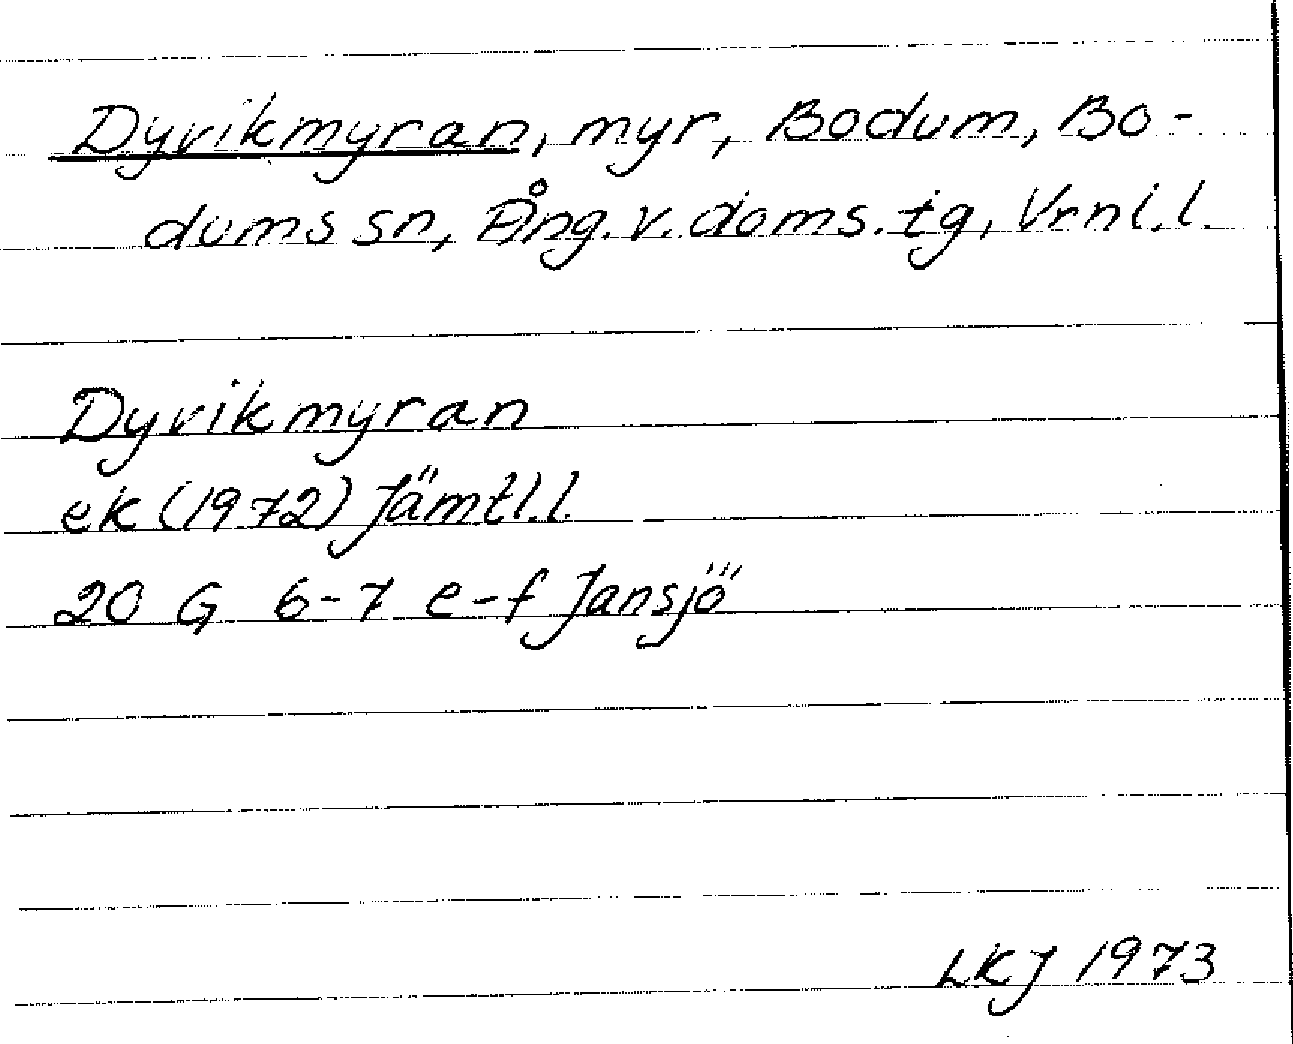 Dyvikmyran, myr, Bodum, Bo-
dums sn, Ång. v. doms. tg, Vrnl. l.
Dyvikmyran
ek (1972) Jämtl. l.
20 G 6-7 e-f Jansjö
LKJ 1973